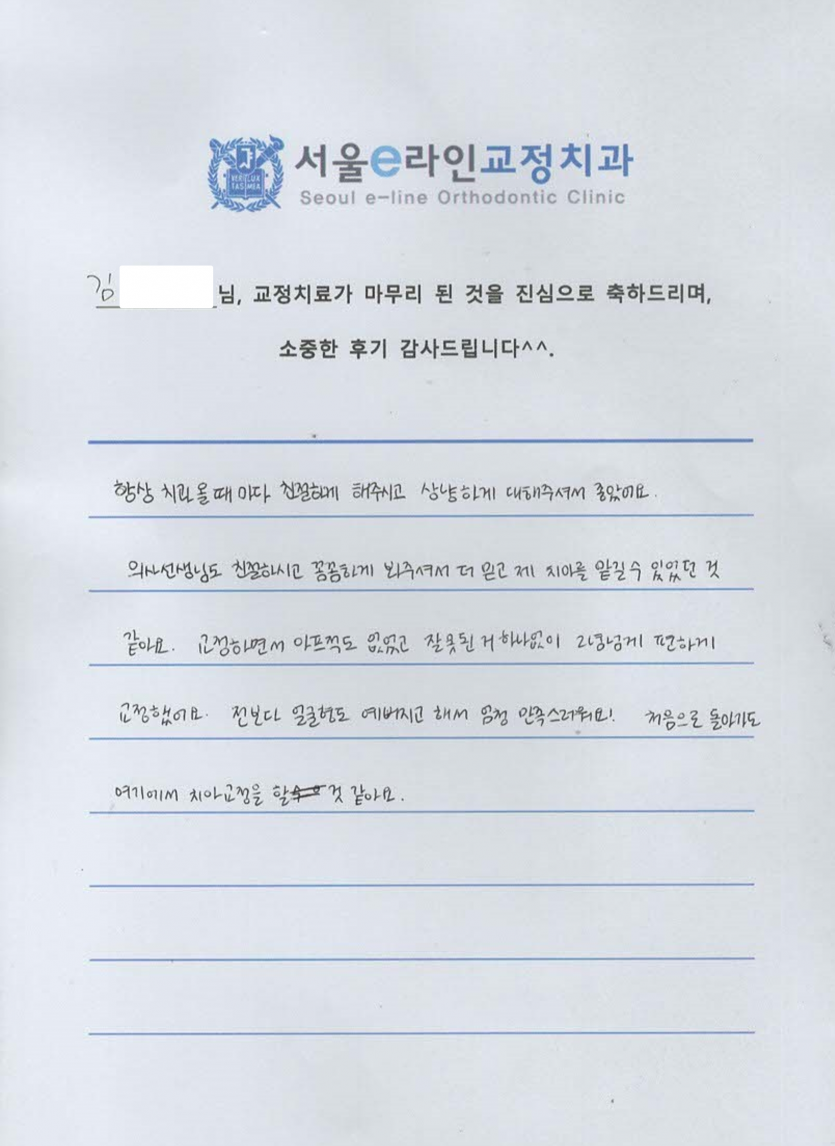 서울e라인교정치과
Seoul e-line Orthodontic Clinic
김 님, 교정치료가 마무리 된 것을 진심으로 축하드리며,
소중한 후기 감사드립니다^^.
항상 치과 올때 마다 친절하게 해주시고 상냥하게 대해주셔서 좋았어요.
의사선생님도 친절하시고 꼼꼼하게 봐주셔서 더 믿고 제 치아를 맡길수 있었던 것
같아요. 교정하면서 아프적도 없었고 잘못된거 하나없이 2년넘게 편하게
교정했어요. 전보다 얼굴형도 예뻐지고 해서 엄청 만족스러워요! 처음으로 돌아가도
여기에서 치아교정을 할 것 같아요.